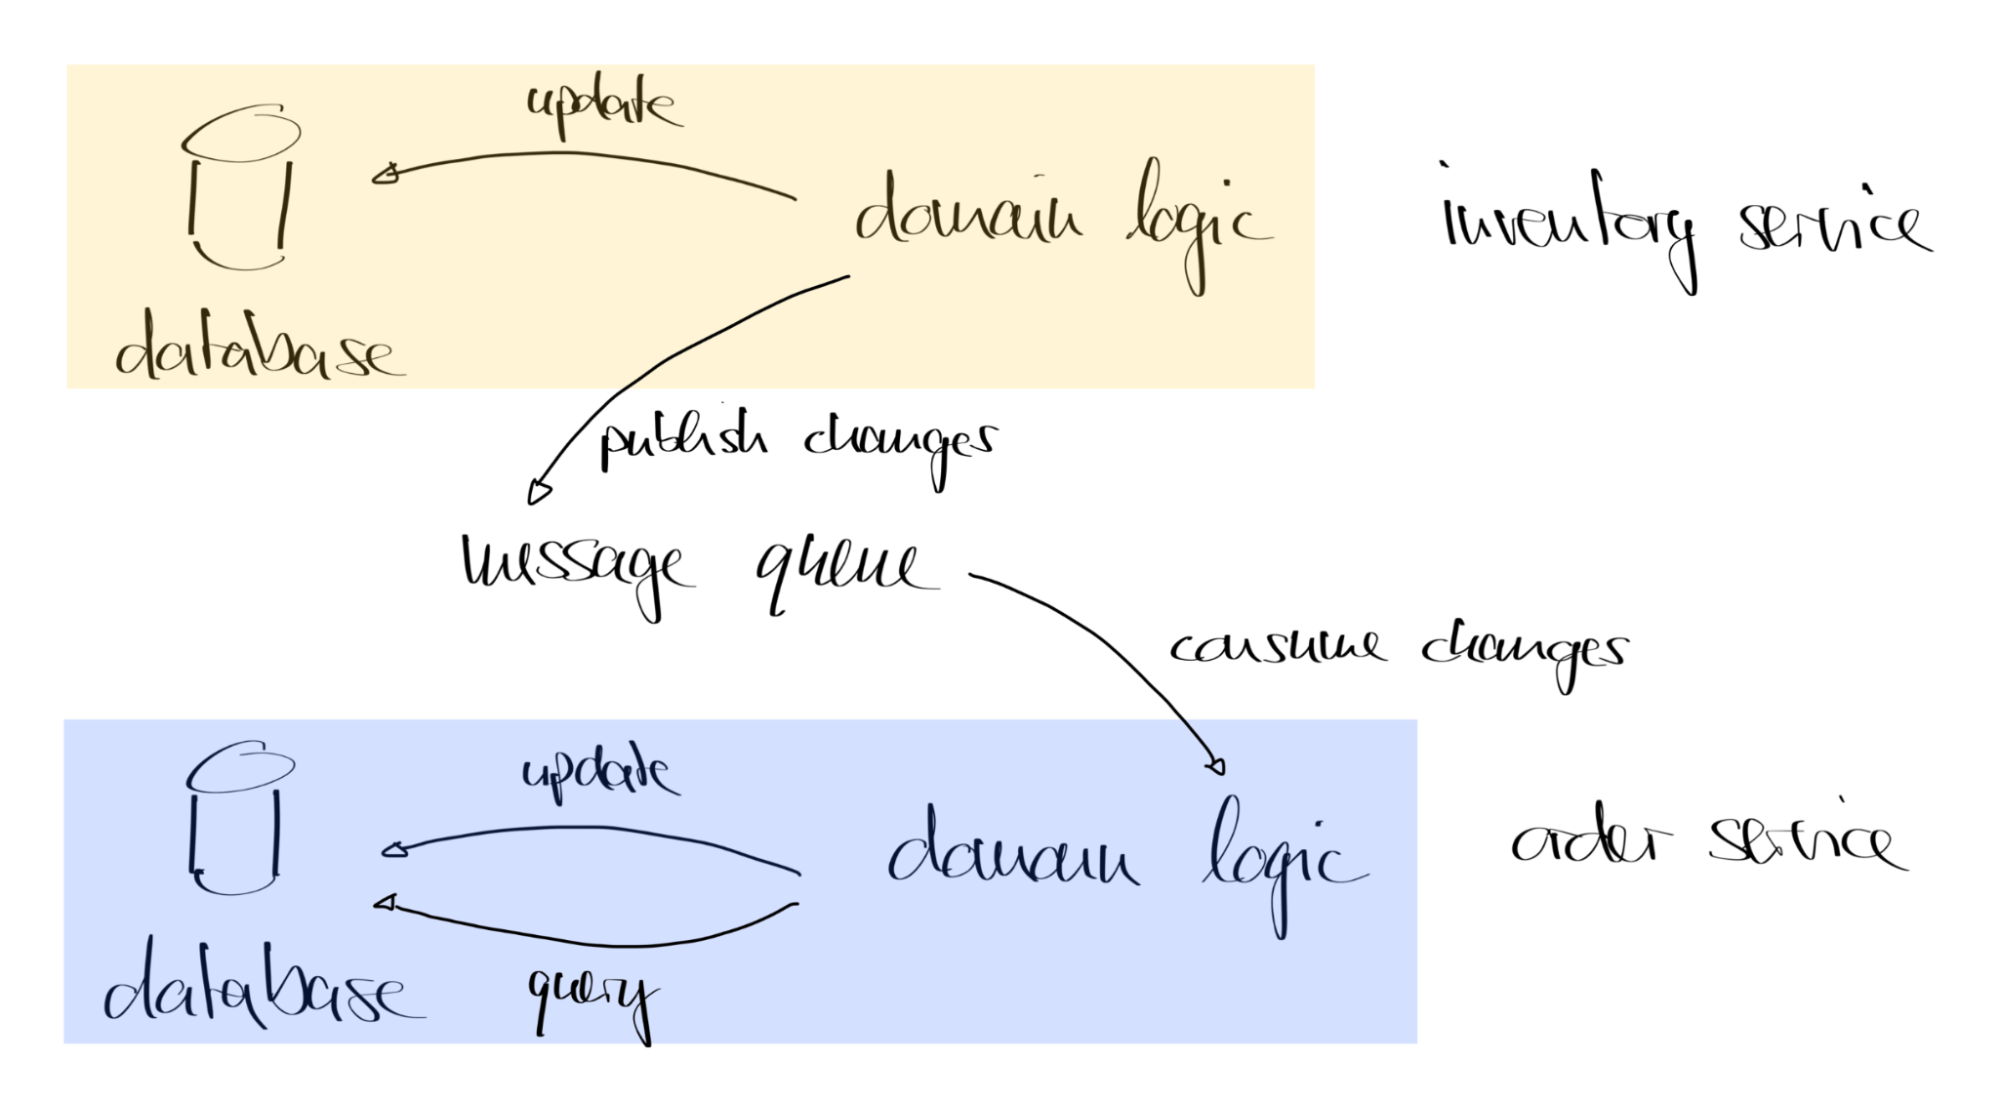 update
domain logic
inventory service
database
publish changes
message queue
consume changes
update
domain logic
order service
database
query